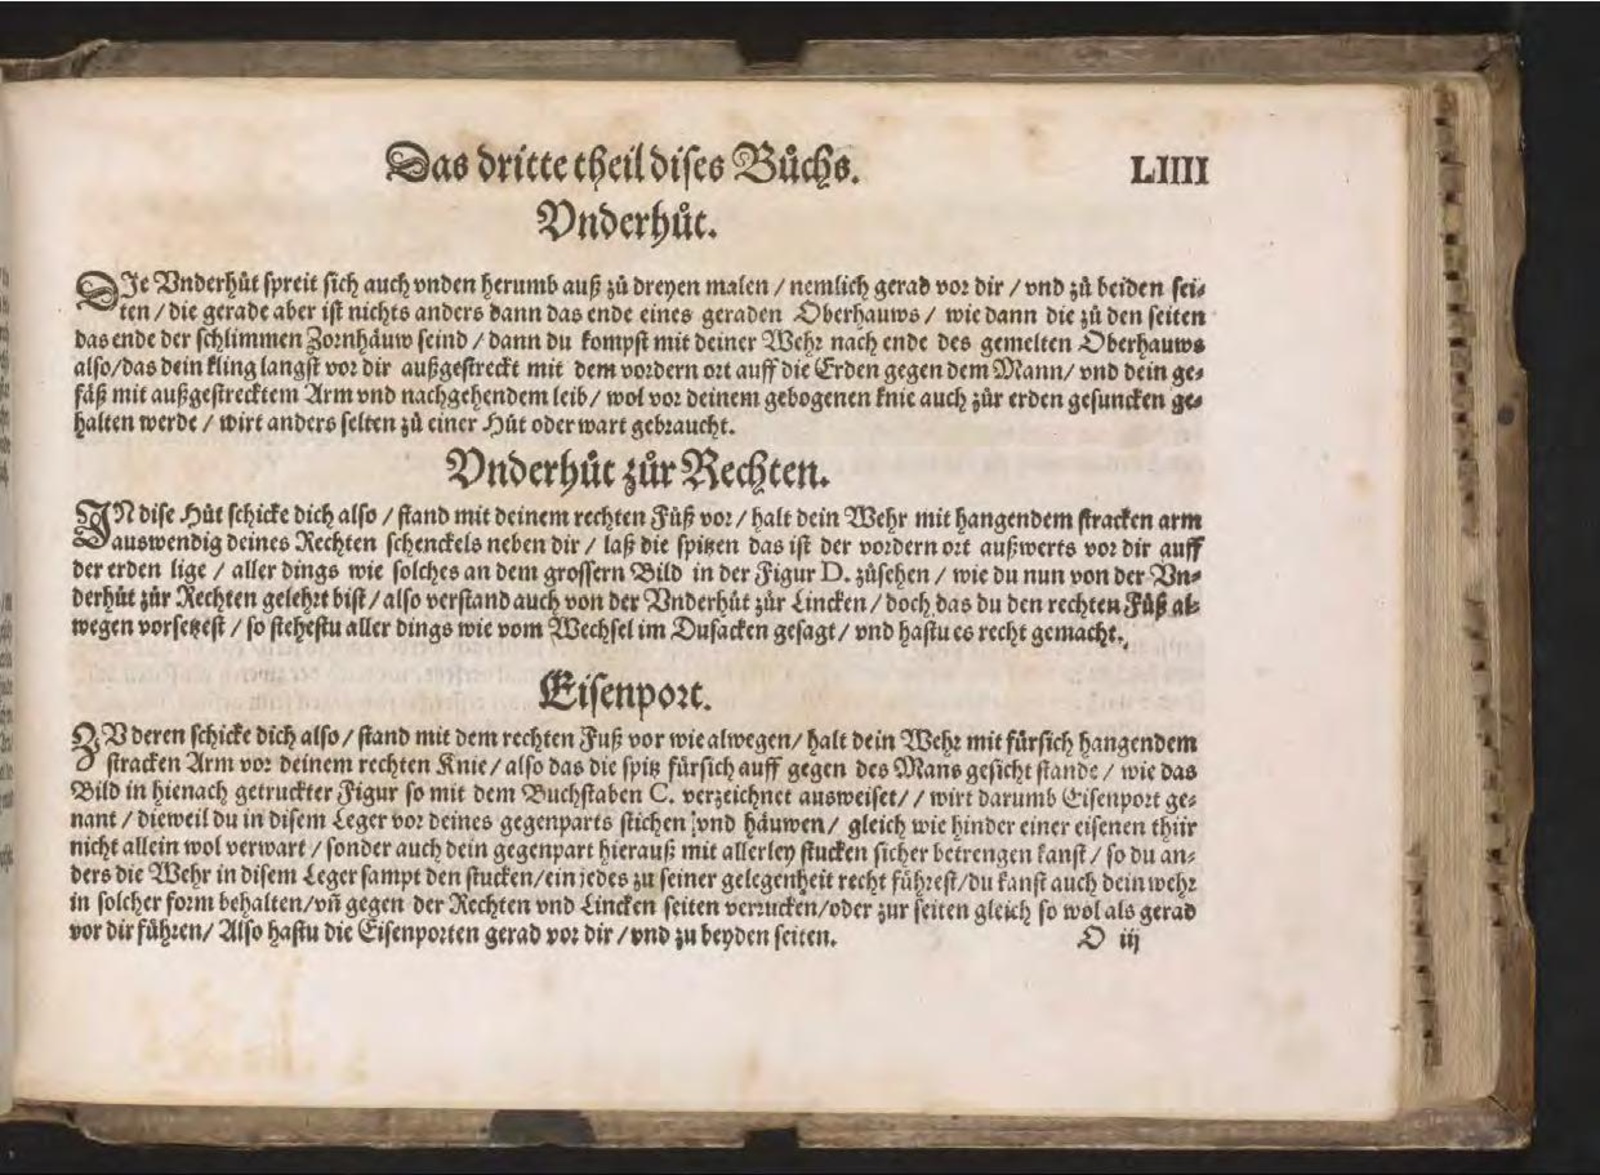 Das dritte theil dises Bůchs. LIIII
Vnderhůt.
DIe Vnderhůt spreit sich auch vnden herumb auß zů dreyen malen / nemlich gerad vor dir / vnd zů beiden sei-
ten / die gerade aber ist nichts anders dann das ende eines geraden Oberhauws / wie dann die zů den seiten
das ende der schlimmen Zornhäuw seind / dann du kompst mit deiner Wehr nach ende des gemelten Oberhauws
also / das dein kling langst vor dir außgestreckt mit dem vordern ort auff die Erden gegen dem Mann / vnd dein ge-
fäß mit außgestrecktem Arm vnd nachgehendem leib / wol vor deinem gebogenen knie auch zůr erden gesuncken ge-
halten werde / wirt anders selten zů einer Hůt oder wart gebraucht.
Vnderhůt zůr Rechten.
IN dise Hůt schicke dich also / stand mit deinem rechten Fůß vor / halt dein Wehr mit hangendem stracken arm
auswendig deines Rechten schenckels neben dir / laß die spitzen das ist der vordern ort außwerts vor dir auff
der erden lige / aller dings wie solches an dem grossern Bild in der Figur D. zůsehen / wie du nun von der Vn-
derhůt zůr Rechten gelehrt bist / also verstand auch von der Vnderhůt zůr Lincken / doch das du den rechten Fůß al-
wegen vorsetzest / so stehestu aller dings wie vom Wechsel im Dusacken gesagt / vnd hastu es recht gemacht.
Eisenport.
ZV deren schicke dich also / stand mit dem rechten Fuß vor wie alwegen / halt dein Wehr mit fürsich hangendem
stracken Arm vor deinem rechten Knie / also das die spitz fürsich auff gegen des Mans gesicht stande / wie das
Bild in hienach getruckter Figur so mit dem Buchstaben C. verzeichnet ausweiset / / wirt darumb Eisenport ge-
nant / dieweil du in disem Leger vor deines gegenparts stichen vnd häuwen / gleich wie hinder einer eisenen thür
nicht allein wol verwart / sonder auch dein gegenpart hierauß mit allerley stucken sicher betrengen kanst / so du an-
ders die Wehr in disem Leger sampt den stucken / ein jedes zu seiner gelegenheit recht führest / du kanst auch dein wehr
in solcher form behalten / vñ gegen der Rechten vnd Lincken seiten verzucken / oder zur seiten gleich so wol als gerad
vor dir führen / Also hastu die Eisenporten gerad vor dir / vnd zu beyden seiten. O iij